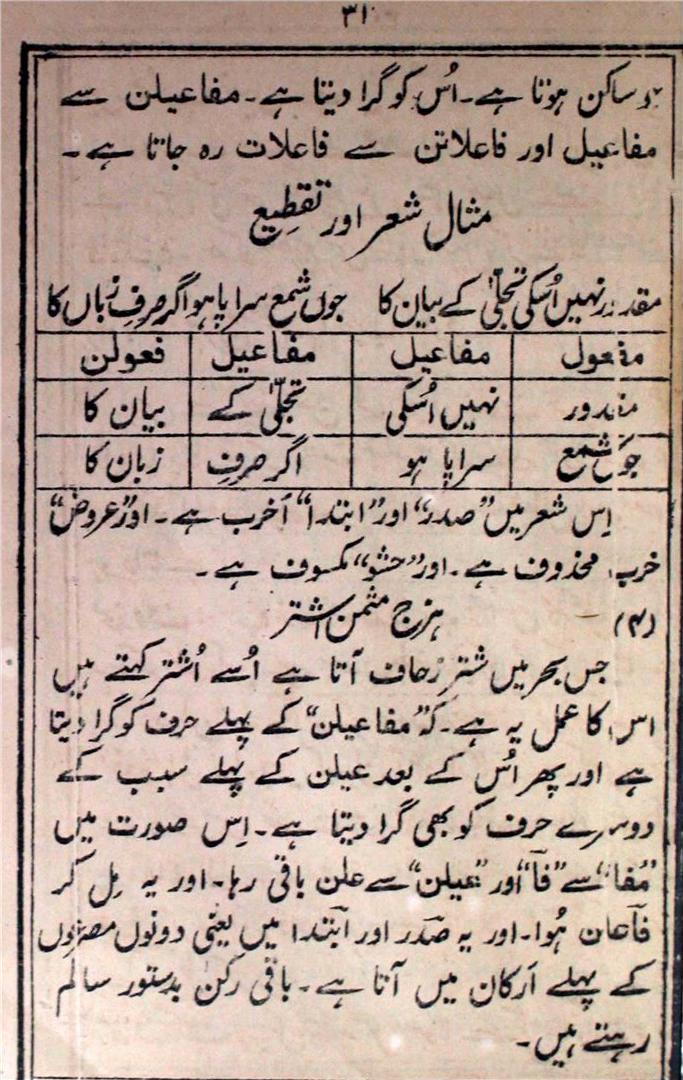 ۳۱
ساکن ہوتا ہے۔ اُس کو گرا دیتا ہے۔ مفاعیلن سے
مفاعیل اور فاعلاتن سے فاعلات رہ جاتا ہے۔
مثال شعر اور تقطیع
مقدور نہیں اُسکی تجلّیٰ کے بیان کا جوں شمع سراپا ہو اگر صرفِ زباں کا
مفعول مفاعیل مفاعیل فعولن
مقدور نہیں اُسکی تجلّیٰ کے بیان کا
جوں شمع سراپا ہو اگر صرفِ زبان کا
اِس شعر میں ”صدر“ اور ”ابتدا“ اَخرب ہے۔ اور ”عروض“
خرب، محذوف ہے۔ اور ”حشو“ مکسوف ہے۔
(۴) ہزج مثمن اشتر
جس بحر میں شتر زحاف آتا ہے اُسے اُشتر کہتے ہیں
اس کا عمل یہ ہے۔ کہ ”مفاعیلن“ کے پہلے حرف کو گرا دیتا
ہے اور پھر اُس کے بعد عیلن کے پہلے سبب کے
دوسرے حرف کو بھی گرا دیتا ہے۔ اِس صورت میں
”مُفا“ سے ”فا“ اور ”عیلن“ سے علن باقی رہا۔ اور یہ مِل کر
فاعلن ہُوا۔ اور یہ صَدر اور ابتدا میں یعنی دونوں مصرعوں
کے پہلے اَرکان میں آتا ہے۔ باقی رکن بدستور سالم
رہتے ہیں۔